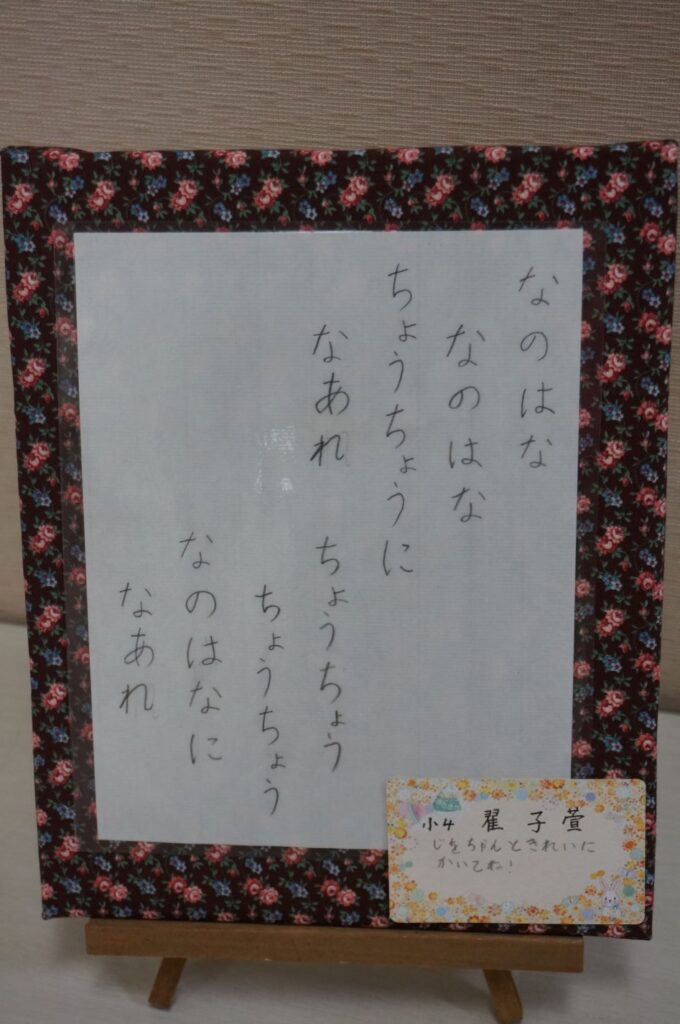 なのはな
なのはな
ちょうちょうに
なあれ
ちょうちょう
ちょうちょう
なのはなに
なあれ
小4 翟子萱
じをちゃんときれいに
かいてね!